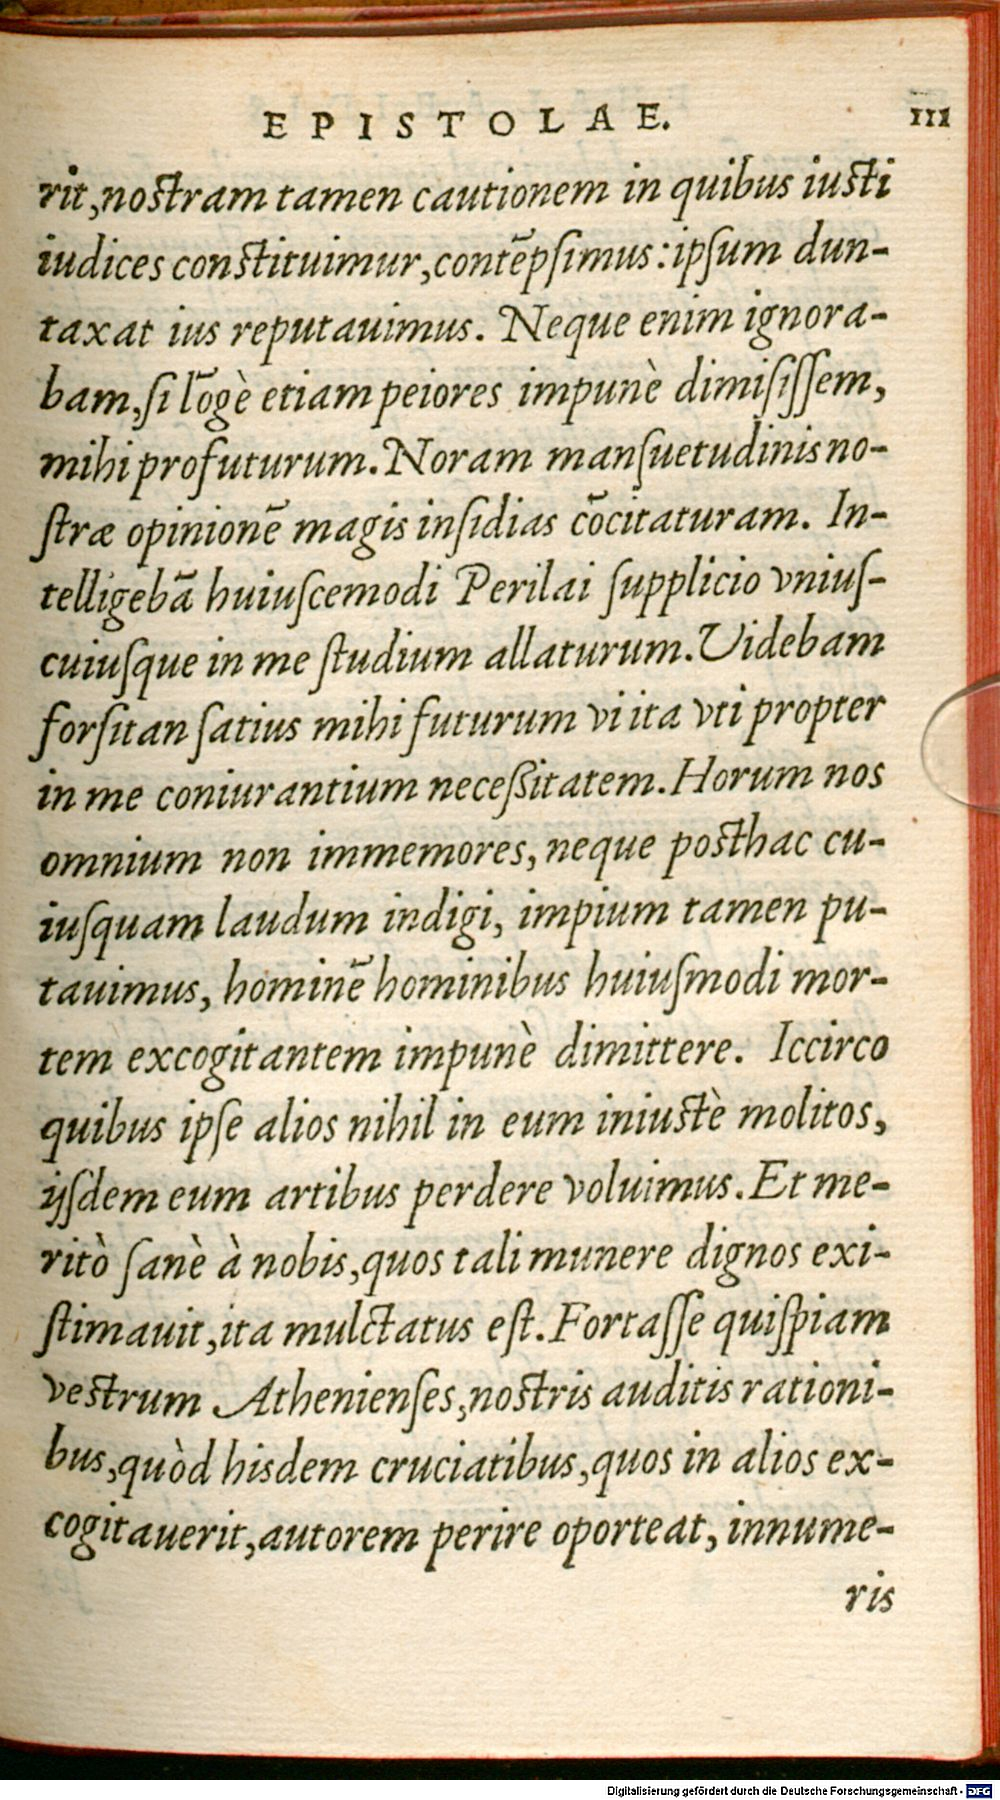 EPISTOLAE. 111
rit,nostram tamen cautionem in quibus iusti
iudices constituimur,contẽpsimus:ipsum dun-
taxat ius reputauimus. Neque enim ignora-
bam,si lõgè etiam peiores impunè dimisissem,
mihi profuturum. Noram mansuetudinis no-
stræ opinionẽ magis insidias cõcitaturam. In-
telligebã huiuscemodi Perilai supplicio vnius-
cuiusque in me studium allaturum. Uidebam
forsitan satius mihi futurum vi ita vti propter
in me coniurantium necessitatem. Horum nos
omnium non immemores, neque posthac cu-
iusquam laudum indigi, impium tamen pu-
tauimus, hominẽ hominibus huiusmodi mor-
tem excogitantem impunè dimittere. Iccirco
quibus ipse alios nihil in eum iniustè molitos,
ijsdem eum artibus perdere voluimus. Et me-
ritò sanè à nobis,quos tali munere dignos exi-
stimauit,ita mulctatus est. Fortasse quispiam
vestrum Athenienses,nostris auditis rationi-
bus,quòd hisdem cruciatibus,quos in alios ex-
cogitauerit,autorem perire oporteat, innume-
ris
Digitalisierung gefördert durch die Deutsche Forschungsgemeinschaft - DFG